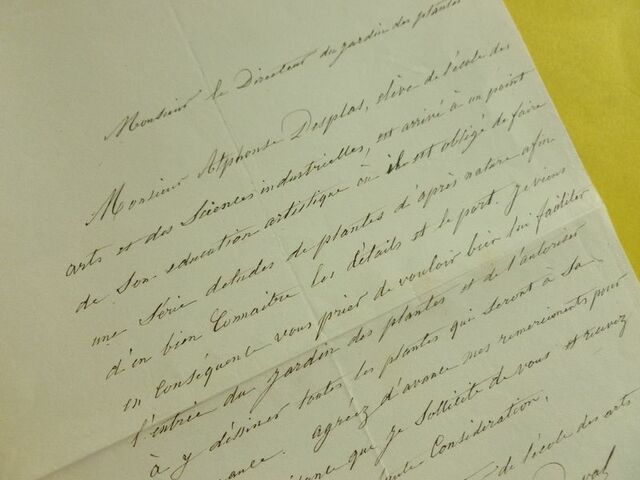 Monsieur le Directeur du jardin des plantes
Monsieur Alphonse Desplas, élève de l'école des
arts et des Sciences industrielles, est arrivé à un point
de son education artistique où il est obligé de faire
une Série detudes de plantes d'après nature afin
d'en bien Connaitre les détails et le port. Je viens
en Conséquence vous prier de vouloir bien lui faciliter
l'entrée du jardin des plantes et de l'autoriser
à y déssiner toutes les plantes qui seront à sa
agréez d'avance mes remerciments pour
que je Sollicite de vous et recevez
Consideration,
de l'école des arts